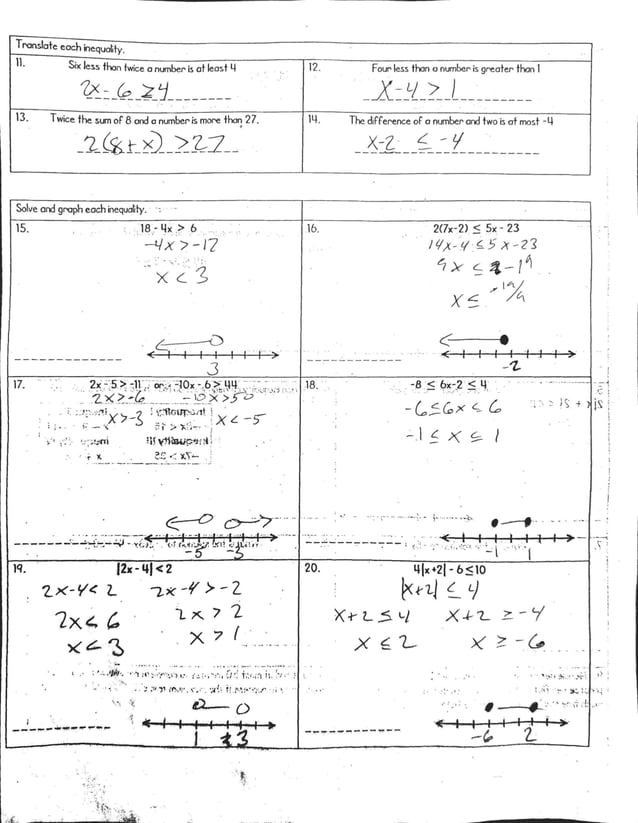 Translate each inequality.
11. Six less than twice a number is at least 4
2x - 6 ≥ 4
12. Four less than a number is greater than 1
x - 4 > 1
13. Twice the sum of 8 and a number is more than 27.
2(8+x) > 27
14. The difference of a number and two is at most -4
x-2 ≤ -4
Solve and graph each inequality.
15. 18 - 4x > 6
-4x > -12
x < 3
3
16. 2(7x-2) ≤ 5x - 23
14x-4 ≤ 5x-23
9x ≤ -19
x ≤ -19/9
-2
17. 2x - 5 > -11 or -10x - 6 > 44
2x > -6 -10x > 50
x > -3 x < -5
-5 -3
18. -8 ≤ 6x-2 ≤ 4
-6 ≤ 6x ≤ 6
-1 ≤ x ≤ 1
-1 1
19. |2x - 4| < 2
2x-4 < 2 2x-4 > -2
2x < 6 2x > 2
x < 3 x > 1
1 3
20. 4|x+2| - 6 ≤ 10
|x+2| ≤ 4
x+2 ≤ 4 x+2 ≥ -4
x ≤ 2 x ≥ -6
-6 2